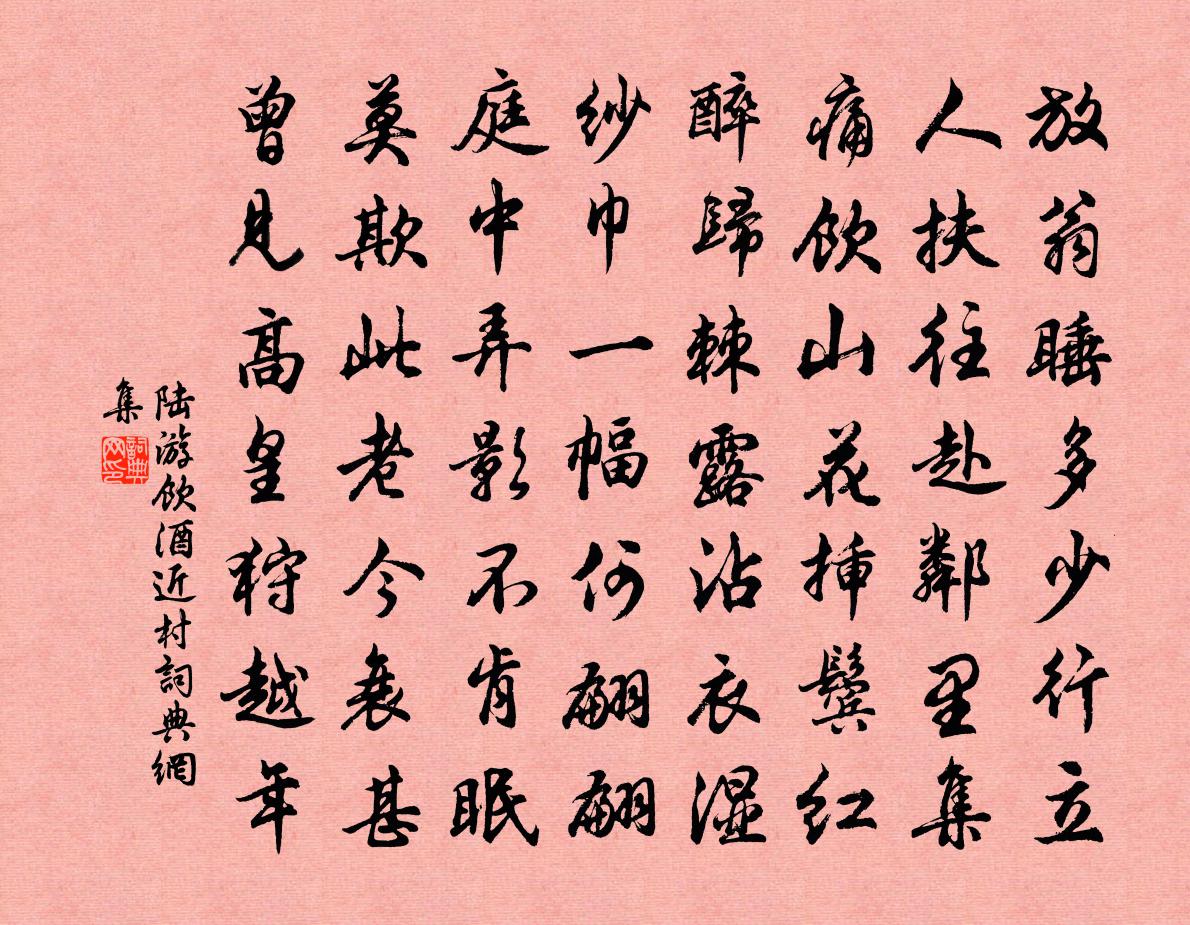 放翁睡多少行立
人扶往赴鄰里集
痛飲山花插鬢紅
醉歸棘露沾衣湿
紗巾一幅何翩翩
庭中弄影不肯眠
莫欺此老今衰甚
曾見高皇狩越年
陆游飲酒近村詞典網
集
詞典网印